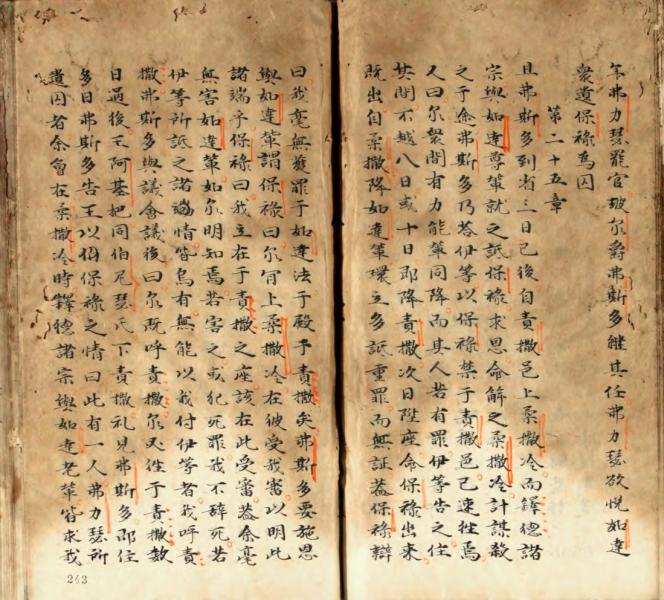 年弗力瑟罷官玻尔爵弗斯多継其任弗力瑟欲悦如達
衆遺保祿為囚
第二十五章
且弗斯多到省三日已後自責撒邑上柔撒冷而鐸德諸
宗與如達尊輩就之詆保祿求恩命解之柔撒冷計謀殺
之于途弗斯多乃答伊等以保祿禁于責撒邑己速往焉
又曰尔衆間有力能輩同降而其人若有罪伊等告之住
其間不越八日或十日即降責撒次日陞座命保祿出來
既出自柔撒降如達輩環立多詆重罪而無証葢保祿辯
曰我毫無獲罪于如達法于殿于責撒矣弗斯多要施恩
與如達輩謂保祿曰尔肯上柔撒冷在彼受我審以明此
諸端乎保祿曰我立在于責撒之座該在此受審葢余毫
無害如達輩如尔明知焉若害之或犯死罪我不辞死若
伊等所詆之諸端情皆烏有無能以我付伊等者我呼責
撒弗斯多與議會議後曰尔既呼責撒尔必往于責撒数
日過後王阿基把同伯尼瑟氏下責撒礼見弗斯多即住
多日弗斯多告王以保祿之情曰此有一人弗力瑟所
遺囚者余曾在柔撒冷時鐸德諸宗與如達老輩皆求我
243